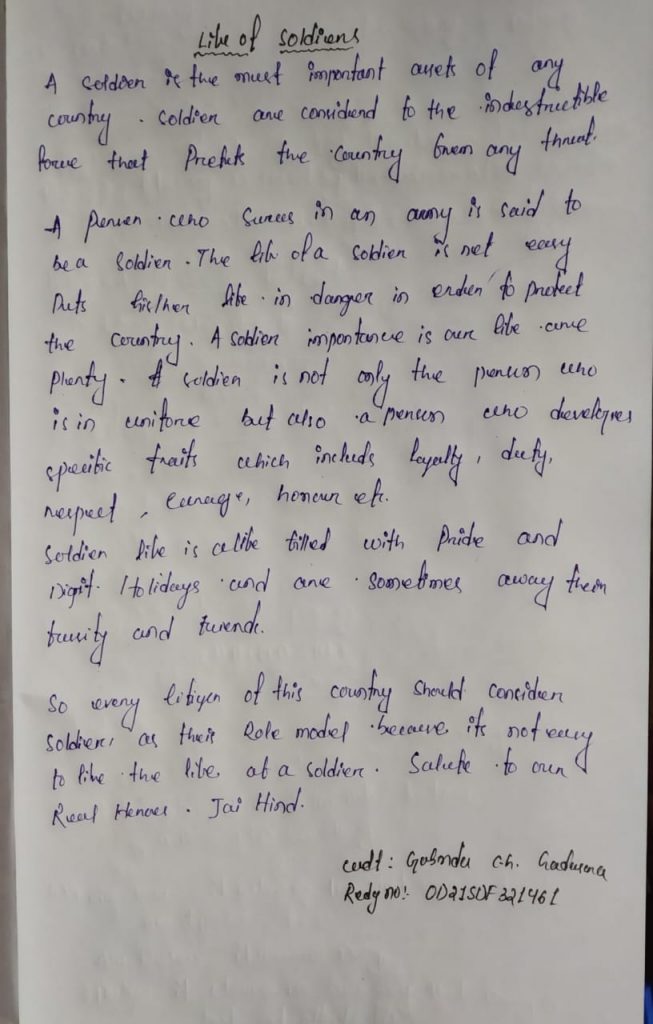 Life of Soldiers
A soldier is the must important assets of any
country. Soldier are considerd to the indestructible
force that Protects the country from any threat.
A person who serves in an army is said to
be a Soldier. The life of a soldier is not easy
Puts his/her life in danger in order to protect
the country. A soldier importance is our life are
Plenty. A soldier is not only the person who
is in uniform but also a person who developes
specific traits which includs loyalty, duty,
respect, courage, honour etc.
Soldier life is a life filled with Pride and
Digit. Holidays and are sometimes away from
family and friends.
So every citizen of this country should consider
soldiers as their Role model because its not easy
to live the life of a soldier. Salute to our
Real Heroes. Jai Hind.
cudt: ch.
Redg no: OD21SDF321461